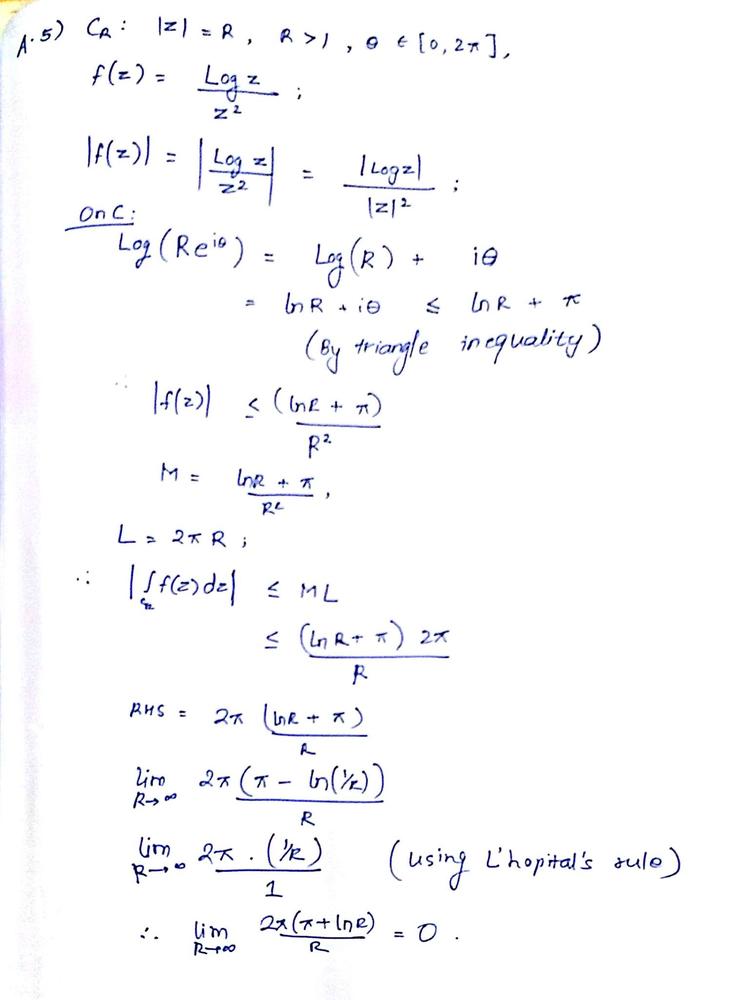 A.5) C_R : |z| = R, R > 1, θ ∈ [0, 2π],
f(z) = Log z / z² ;
|f(z)| = |Log z / z²| = |Log z| / |z|² ;
On C:
Log(Re^{iθ}) = Log(R) + iθ
= ln R + iθ ≤ ln R + π
(By triangle inequality)
∴ |f(z)| ≤ (ln R + π) / R²
M = ln R + π / R² ,
L = 2πR ;
∴ |∫_{C_R} f(z) dz| ≤ ML
≤ (ln R + π) 2π / R
RHS = 2π (ln R + π) / R
lim_{R→∞} 2π (π − ln(1/R)) / R
lim_{R→∞} 2π . (1/R) / 1 (using L'hopital's rule)
∴ lim_{R→∞} 2π(π + ln R) / R = 0 .